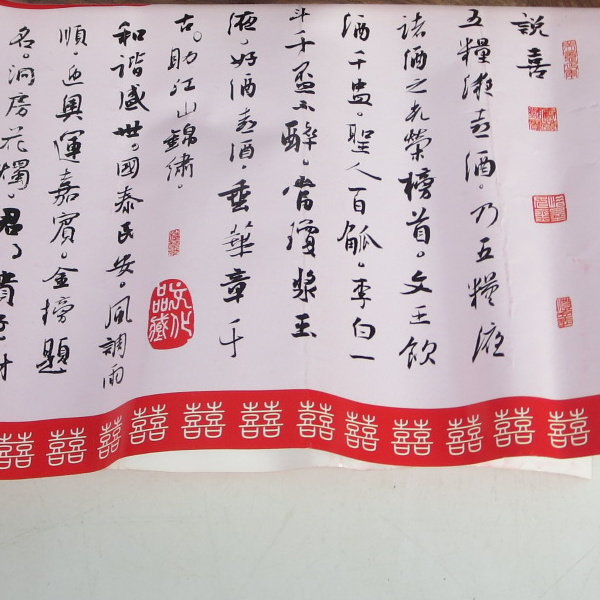 說喜
五糧液喜酒。乃五糧液
諸酒之光榮榜首。文王飲
酒千盅。聖人百觚。李白一
斗千盃不醉。當瓊漿玉
液。好酒喜酒。垂華章千
古。助江山錦繡。
文化品藏
和諧盛世。國泰民安。風調雨
順。迎奧運嘉賓。金榜題
名。洞房花燭。君
囍囍囍囍囍囍囍囍囍囍囍囍